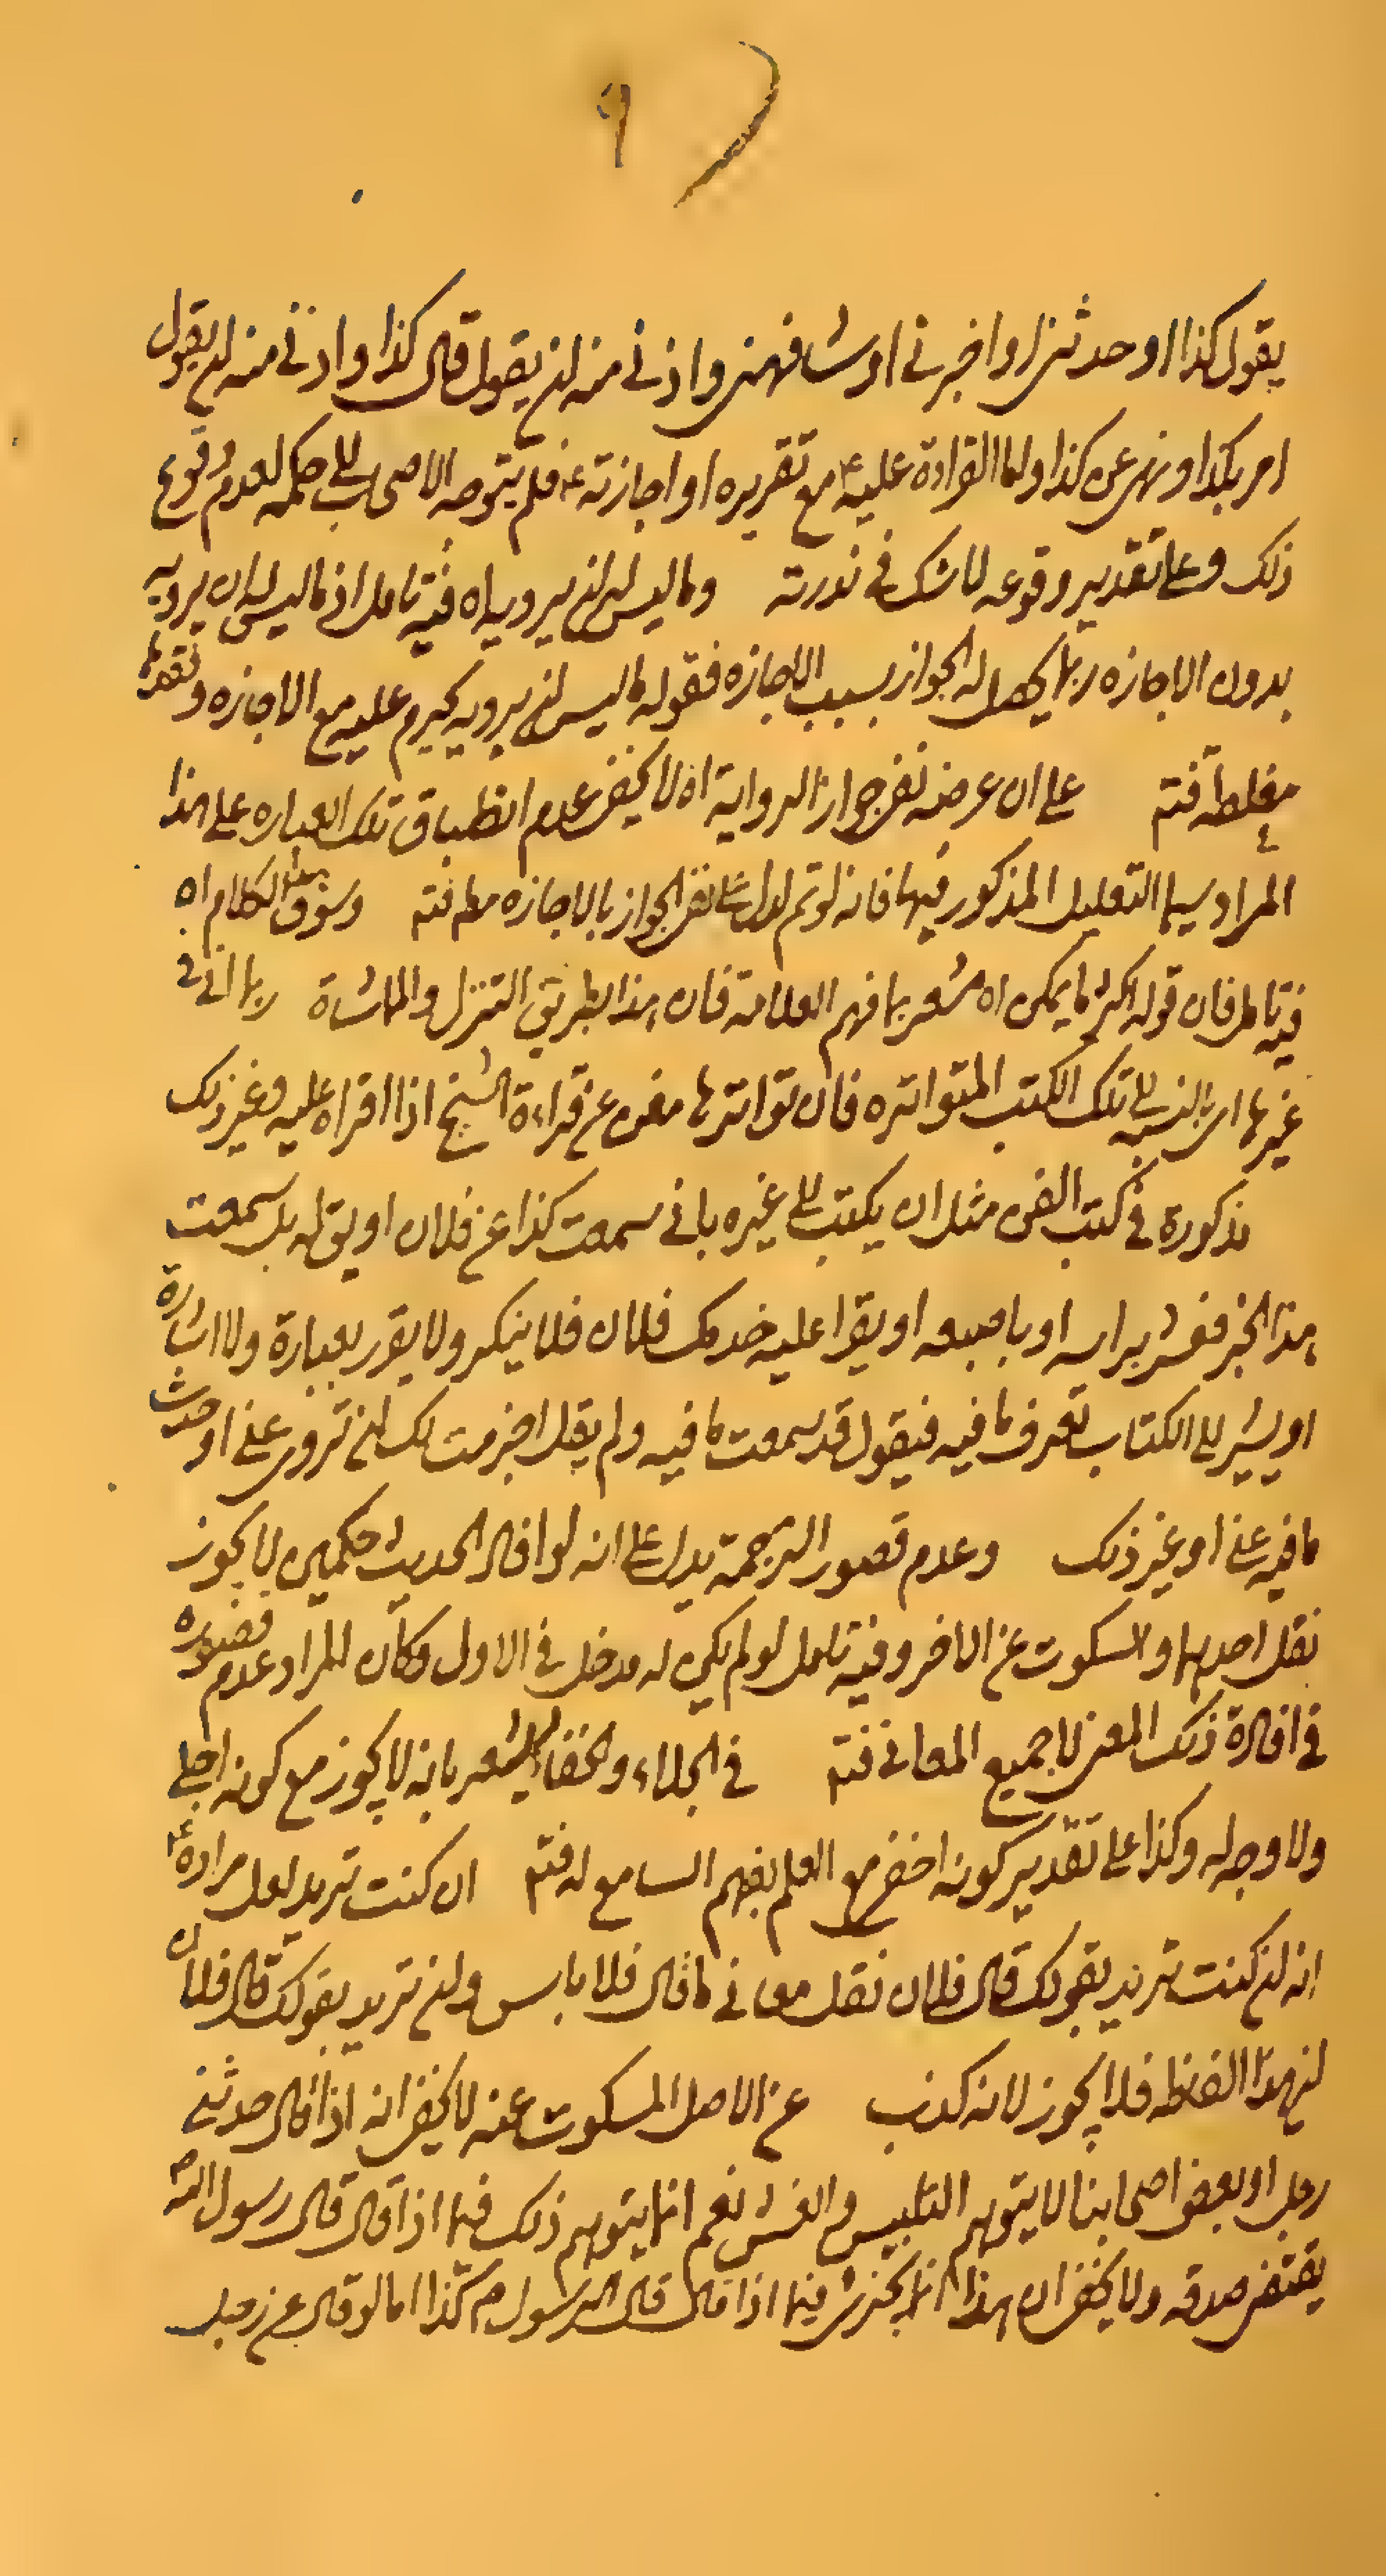 يقول كذا او حدثنى او اخبرنى او شافهنى واذنى منه ان يقول قال كذا وادنى منه ان يقول
امر بكذا او نهى عن كذا واما القراءة عليه ع مع تقريره او اجازته ع فلم يتوجه الاصحاب الى حكمه لعدم وقوع
ذلك وعلى تقدير وقوعه لا شك فى ندرته وما ليس له ان يرويه اه فيه تامل اذ ما ليس له ان يرويه
بدون الاجازه ربما يحصل له الجواز بسبب الاجازه فقوله ما ليس له ان يرويه يحرم عليه مع الاجازه وفقدها
مغلطة فتم على ان غرضه نفى جواز الرواية اه لا يخفى عدم انطباق تلك العباره على هذا
المراد سيما التعليل المذكور فيها فانه لو تم لدل على نفى الجواز بالاجازه مط فتم وسوق هذا الكلام اه
فيه تامل فان قوله اكثر ما يمكن اه مشعر بما فهم العلامة فان هذا بطريق التنزل والمماشاة ربما اتى فى
غيرها اى بالنسبة الى تلك الكتب المتواتره فان تواترها مغن عن قراءة الشيخ اذا قراه عليه وغير ذلك
مذكورة فى كتب الفن مثل ان يكتب الى غيره بانى سمعت كذا عن فلان او يق له هل سمعت
هذا الخبر فيشير براسه او باصبعه او يقرا عليه حدثك فلان فلا ينكر ولا يقر بعبارة ولا اشارة
او يشير الى الكتاب تعرف ما فيه فيقول قد سمعت ما فيه ولم يقل اجزت لك ان تروى عنى او حدث
ما فيه عنى او غير ذلك وعدم قصور الترجمة يدل على انه لو افاد الحديث حكمين لا يجوز
نقل احدهما والسكوت عن الاخر وفيه تامل لو لم يكن له مدخل فى الاول وكان المراد عدم قصوره
فى افادة ذلك المعنى لا جميع المعانى فتم فى الجلاء والخفاء يشعر بانه لا يجوز مع كونه اجلى
ولا وجه له وكذا على تقدير كونه اخفى مع العلم بفهم السامع له فتم ان كنت تريد لعل مراده ع
انه ان كنت تريد بقولك قال فلان نقل معانى ما قال فلا باس وان تريد بقولك قال فلان
ان هذا لفظه فلا يجوز لانه كذب عن الاصل المسكوت عنه لا يخفى انه اذا قال حدثنى
رجل او بعض اصحابنا لا يتوهم التلبيس والغش نعم انما يتوهم ذلك فيما اذا قال قال رسول الله ص
يقتضى صدقه ولا يخفى ان هذا انما يجرى فيما اذا قال قال الرسول ص كذا اما لو قال عن رجل